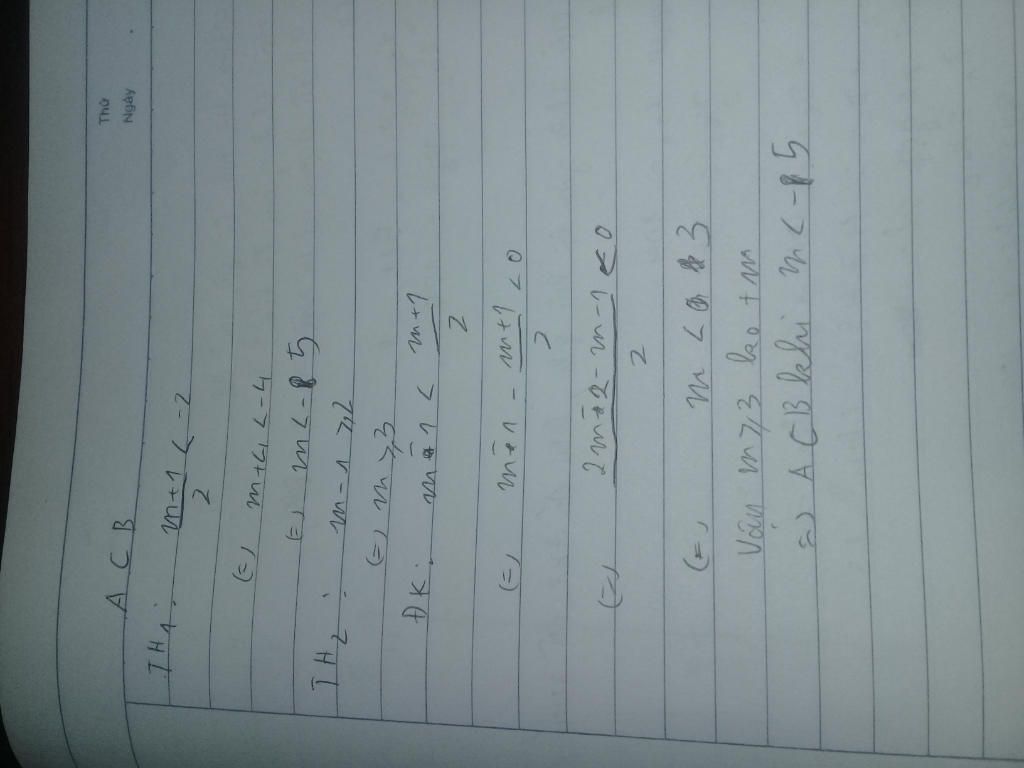 Thứ
Ngày
A ⊂ B
TH1: m+1/2 < -2
(=) m+1 < -4
(=) m < -5
TH2: m-1 ≥ 2
(=) m ≥ 3
ĐK: m-1 < m+1/2
(=) m-1 - m+1/2 < 0
(=) 2m-2-m-1/2 < 0
(=) m < 3
m ≥ 3 ko + m
=) A ⊂ B khi m < -5